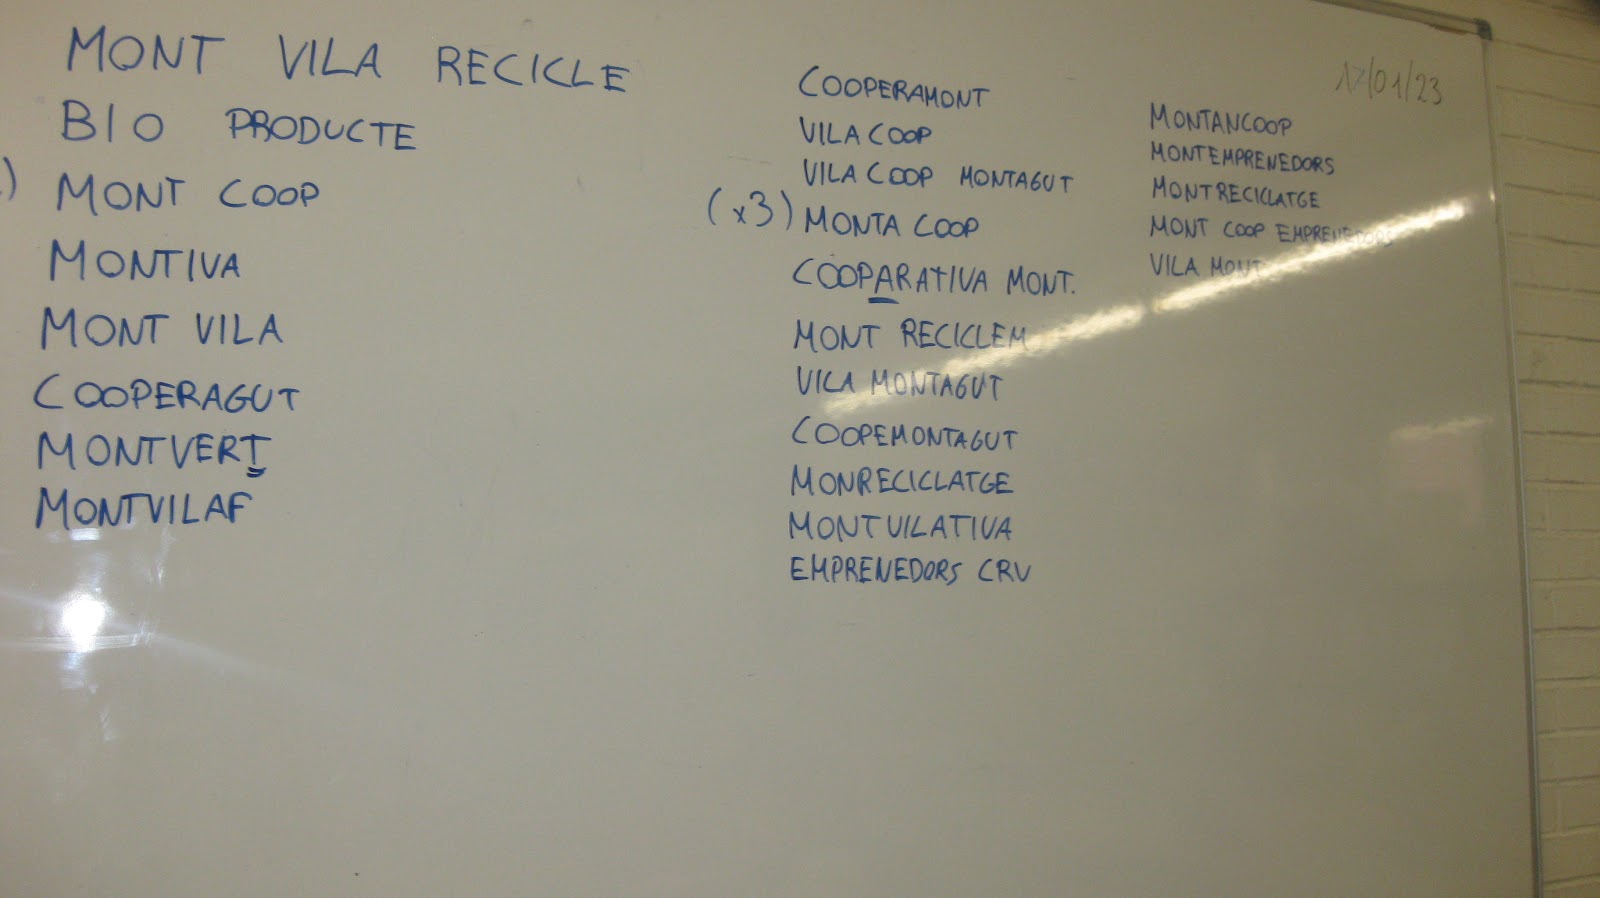 MONT VILA RECICLE
BIO PRODUCTE
) MONT COOP
MONTIVA
MONT VILA
COOPERAGUT
MONTVERT
MONTVILAF
COOPERAMONT
VILA COOP
VILA COOP MONTAGUT
(x3) MONTA COOP
COOPARATIVA MONT.
MONT RECICLEM
VILA MONTAGUT
COOPEMONTAGUT
MONRECICLATGE
MONTVILATIVA
EMPRENEDORS CRV
17/01/23
MONTANCOOP
MONTEMPRENEDORS
MONTRECICLATGE
MONT COOP EMPRENEDORS
VILA MONT